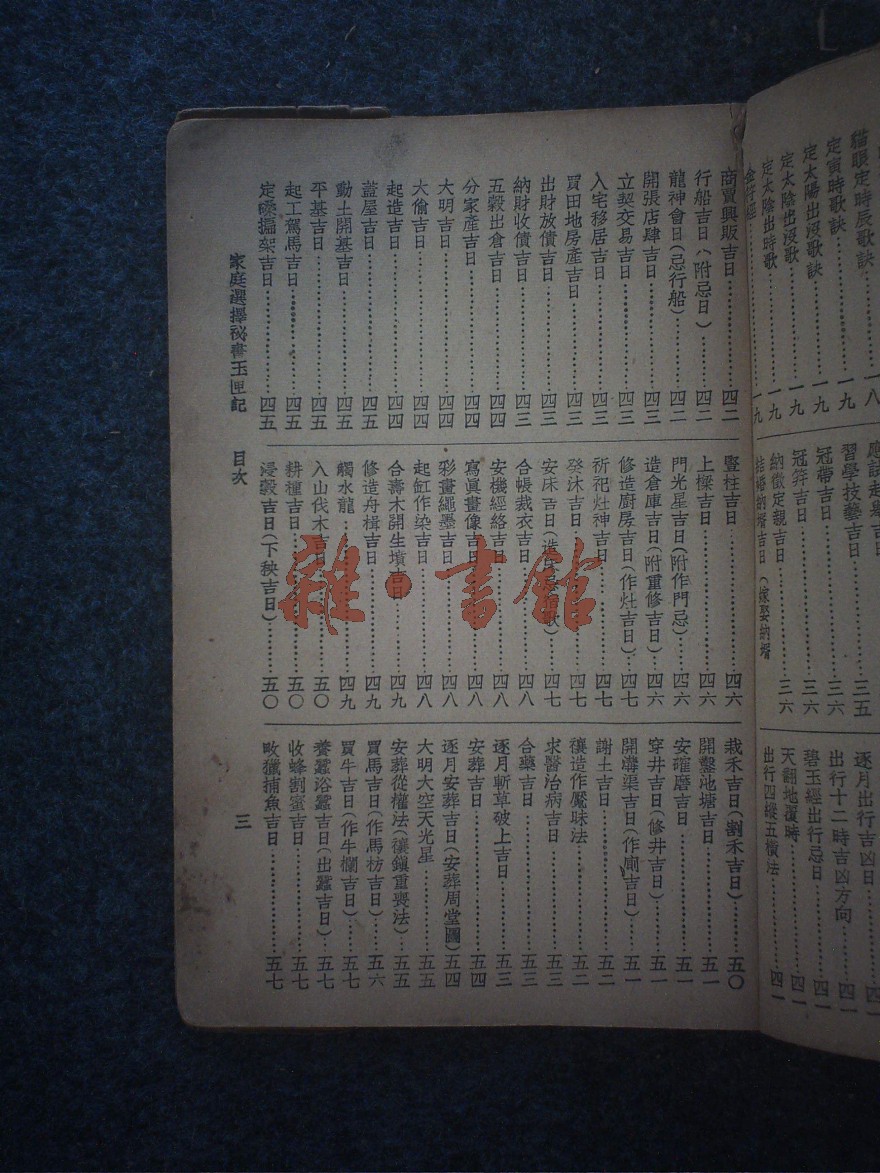 貓眼定時辰歌訣
定寅時歌訣
定太陽出沒歌訣
定太陰出沒歌
定太陰出時歌
習學技藝吉日
冠帶吉日
冠笄吉日
納徵定親吉日
逐月出行吉凶日
出行十二時吉凶方向
出行忌日
天翻地覆時
出行四縱五橫法
商賈興販吉日……四二
行船吉日(附忌日)……四二
龍神會日(忌行船)……四二
開張店肆吉日……四三
立契交易吉日……四三
入宅移居吉日……四三
買田地房產吉日……四三
出財放債吉日……四三
納財收債吉日……四三
五穀出倉吉日……四四
分家產吉日……四四
大明吉日……四四
大偷吉日……四四
起造吉日……四四
蓋屋吉日……四五
動土開基吉日……四五
平基吉日……四五
起工駕馬吉日……四五
定磉搧架吉日……四五
豎柱吉日……四六
上樑吉日……四六
門光星吉日(附作門忌)……四六
造倉庫吉日(附重修吉日)……四六
修造廚房吉日(作灶吉日)……四七
祈祀灶神吉日……四七
癸沐吉日……四七
安床吉日……四七
合帳裁衣吉日……四八
安機經絡吉日……四八
寫真畫像吉日……四八
彩畫繩墨吉日……四八
起缸作染吉日……四八
合壽木開生墳吉日……四九
修造舟楫吉日……四九
觸水龍……四九
入山伐木吉日……五〇
耕種吉日……五〇
浸穀吉日(下秧吉日)……五〇
栽禾吉日(割禾吉日)……五〇
開鑿池塘吉日……五一
安確磨吉日……五一
穿井吉日(修井吉日)……五一
開溝渠吉日(作廁吉日)……五一
謝土吉日……五二
禳造作魘昧法……五二
求醫治病吉日……五三
合藥吉日……五三
逐月斬草破土吉日……五三
安葬吉日……五四
逐月安葬吉日(安葬周堂圖)……五四
大明大空天光星……五五
安葬從權法(禳鎮重喪法)……五五
買馬吉日(作馬枋吉日)……五六
買牛吉日(作牛欄吉日)……五七
養蠶浴蠶吉日(出蠶吉日)……五七
收蜂割蜜吉日……五七
畋獵捕魚吉日……五七
家庭選擇祕書玉匣記 目次 三
雜·書館